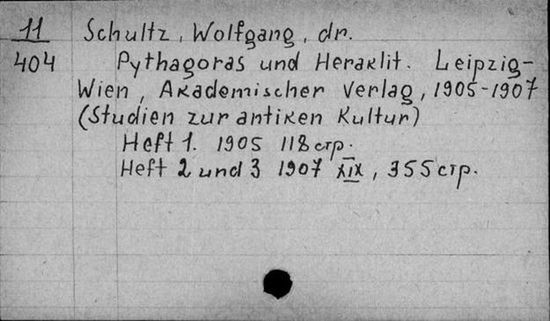 11
404
Schultz, Wolfgang, dr.
Pythagoras und Heraklit. Leipzig-
Wien, Akademischer Verlag, 1905-1907
(Studien zur antiken Kultur)
Heft 1. 1905 118 стр.
Heft 2 und 3 1907 XIX, 355 стр.